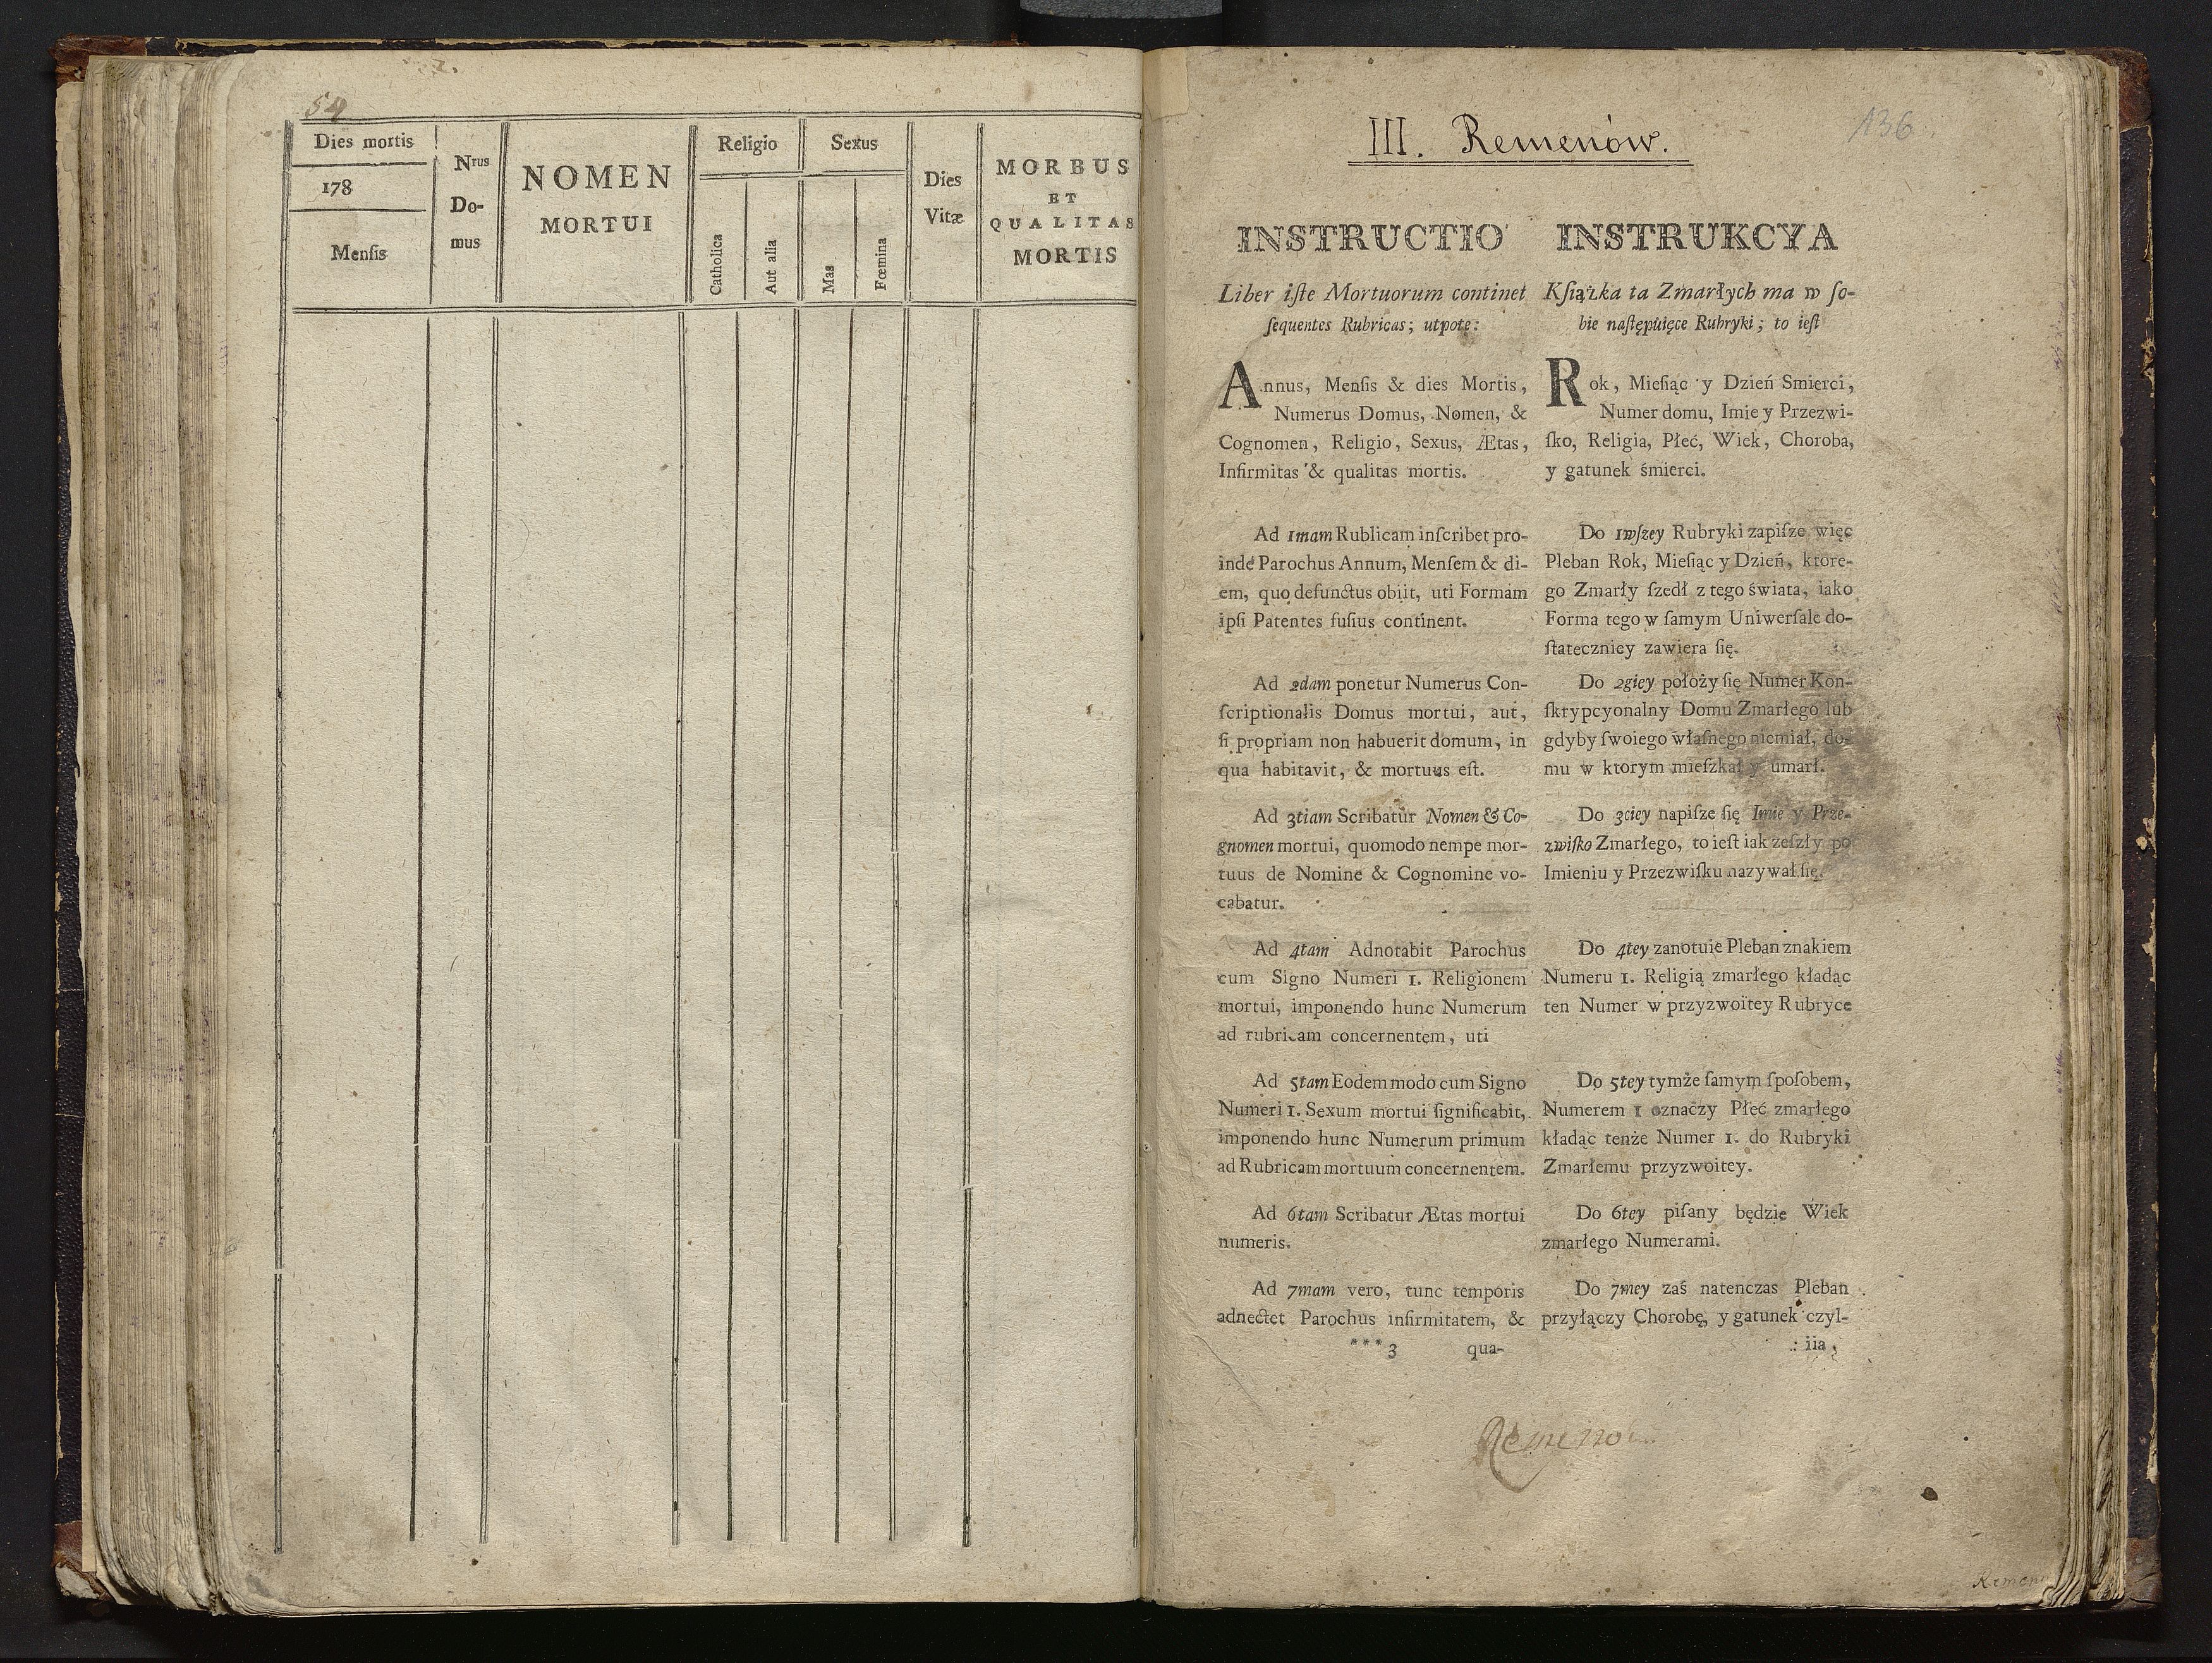 54
Dies mortis
178
Menſis
Nrus
Do-
mus
NOMEN
MORTUI
Religio
Catholica
Aut alia
Sexus
Mas
Fœmina
Dies
Vitæ
MORBUS
ET
QUALITAS
MORTIS
136
III. Remenów.
INSTRUCTIO
Liber iſte Mortuorum continet
ſequentes Rubricas; utpote:
Annus, Menſis & dies Mortis,
Numerus Domus, Nomen, &
Cognomen, Religio, Sexus, Ætas,
Infirmitas & qualitas mortis.
Ad 1mam Rublicam inſcribet pro-
inde Parochus Annum, Menſem & di-
em, quo defunctus obiit, uti Formam
ipſi Patentes fuſius continent.
Ad 2dam ponetur Numerus Con-
ſcriptionalis Domus mortui, aut,
ſi propriam non habuerit domum, in
qua habitavit, & mortuus eſt.
Ad 3tiam Scribatur Nomen & Co-
gnomen mortui, quomodo nempe mor-
tuus de Nomine & Cognomine vo-
cabatur.
Ad 4tam Adnotabit Parochus
cum Signo Numeri 1. Religionem
mortui, imponendo hunc Numerum
ad rubricam concernentem, uti
Ad 5tam Eodem modo cum Signo
Numeri 1. Sexum mortui ſignificabit,
imponendo hunc Numerum primum
ad Rubricam mortuum concernentem.
Ad 6tam Scribatur Ætas mortui
numeris.
Ad 7mam vero, tunc temporis
adnectet Parochus infirmitatem, &
***3 qua-
INSTRUKCYA
Kſiążka ta Zmarłych ma w ſo-
bie naſtępuięce Rubryki; to ieſt
Rok, Mieſiąc y Dzień Smierci,
Numer domu, Imie y Przezwi-
ſko, Religia, Płeć, Wiek, Choroba,
y gatunek śmierci.
Do 1wſzey Rubryki zapiſze więc
Pleban Rok, Mieſiąc y Dzień, ktore-
go Zmarły ſzedł z tego świata, iako
Forma tego w ſamym Uniwerſale do-
ſtateczniey zawiera ſię.
Do 2giey położy ſię Numer Kon-
ſkrypcyonalny Domu Zmarłego lub
gdyby ſwoiego właſnego niemiał, do-
mu w ktorym mieſzkał y umarł.
Do 3ciey napiſze ſię Imie y Prze-
zwiſko Zmarłego, to ieſt iak zeſzły po
Imieniu y Przezwiſku nazywał ſię.
Do 4tey zanotuie Pleban znakiem
Numeru 1. Religią zmarłego kładąc
ten Numer w przyzwoitey Rubryce
Do 5tey tymże ſamym ſpoſobem,
Numerem 1 oznaczy Płeć zmarłego
kładąc tenże Numer 1. do Rubryki
Zmarłemu przyzwoitey.
Do 6tey piſany będzie Wiek
zmarłego Numerami.
Do 7mey zaś natenczas Pleban
przyłączy Chorobę, y gatunek czyl-
iia,